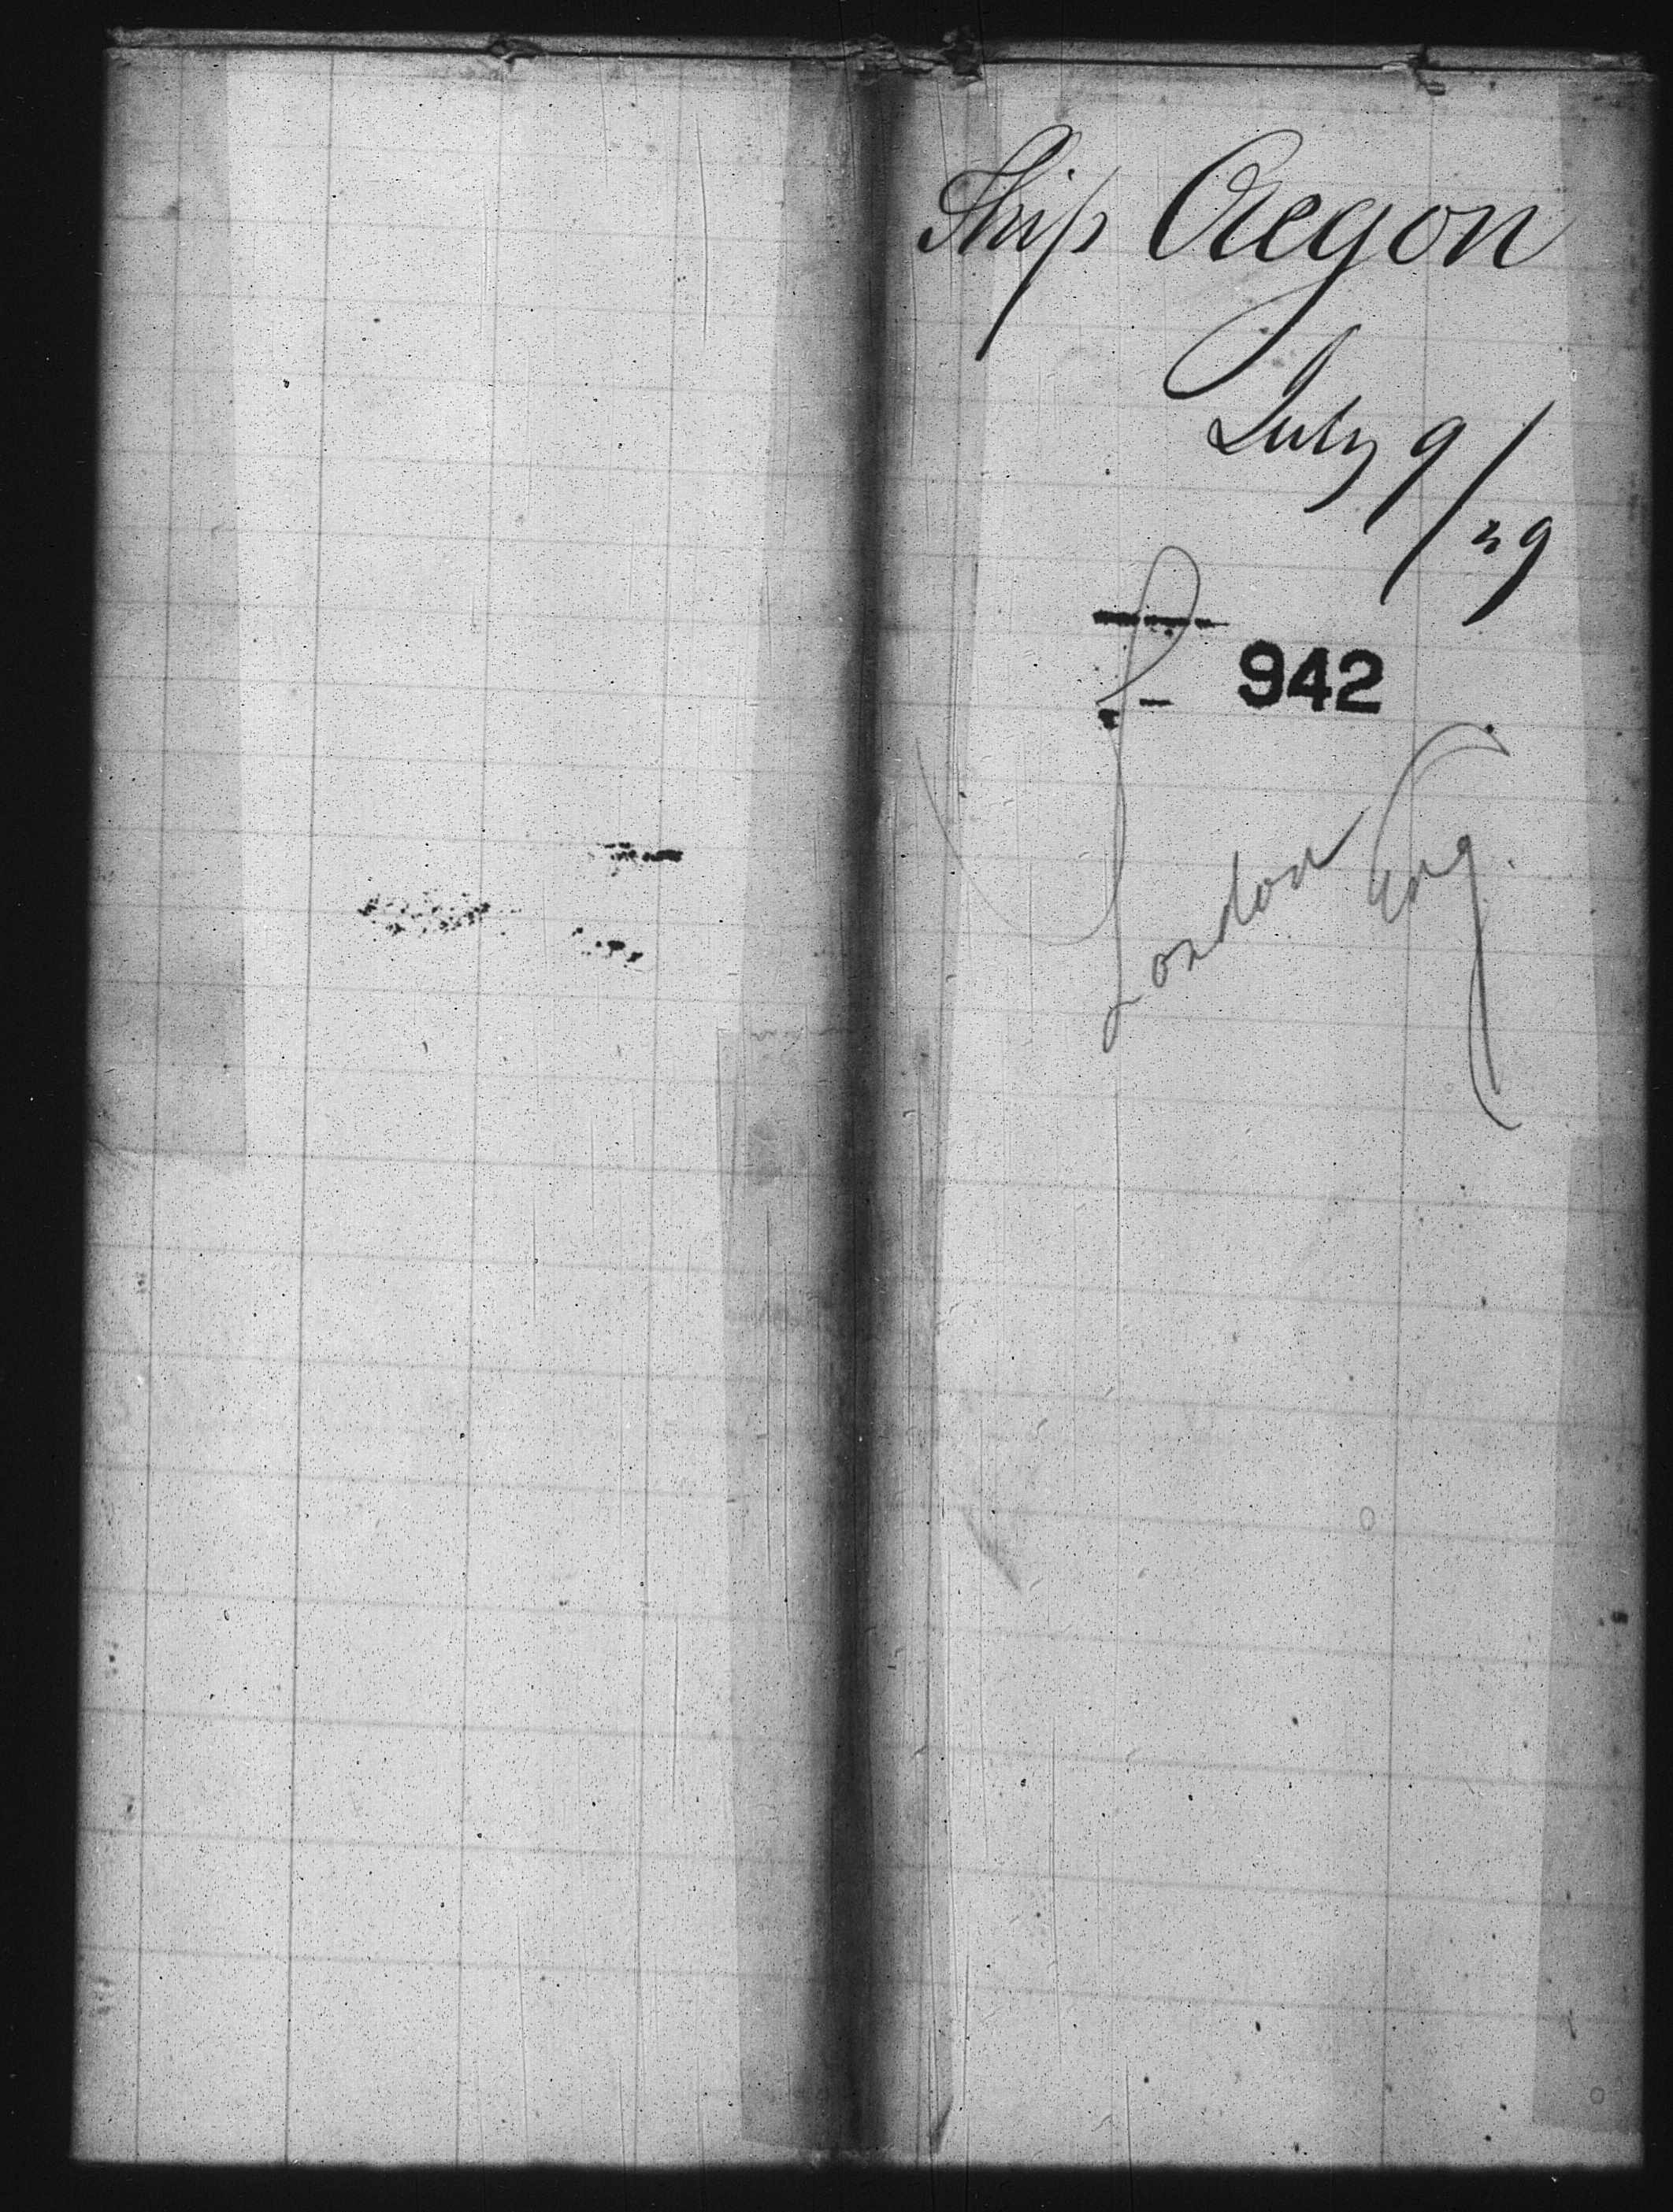 Ship Oregon
July 9/39
942
London Eng.